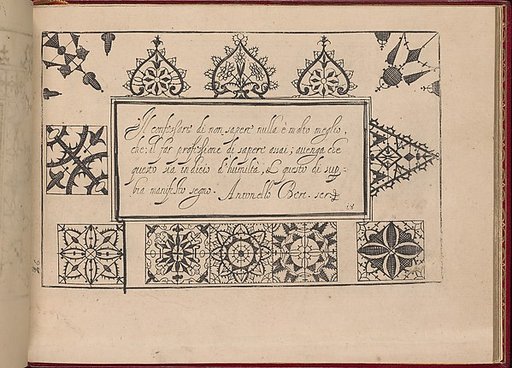 Il confessore di non sapere nulla è molto meglio,
che il far professione di sapere assai; auenga che
questo sia indicio d'humiltà, & questo di sup-
bia manifesto segno. Antonello Bert. scr.
18